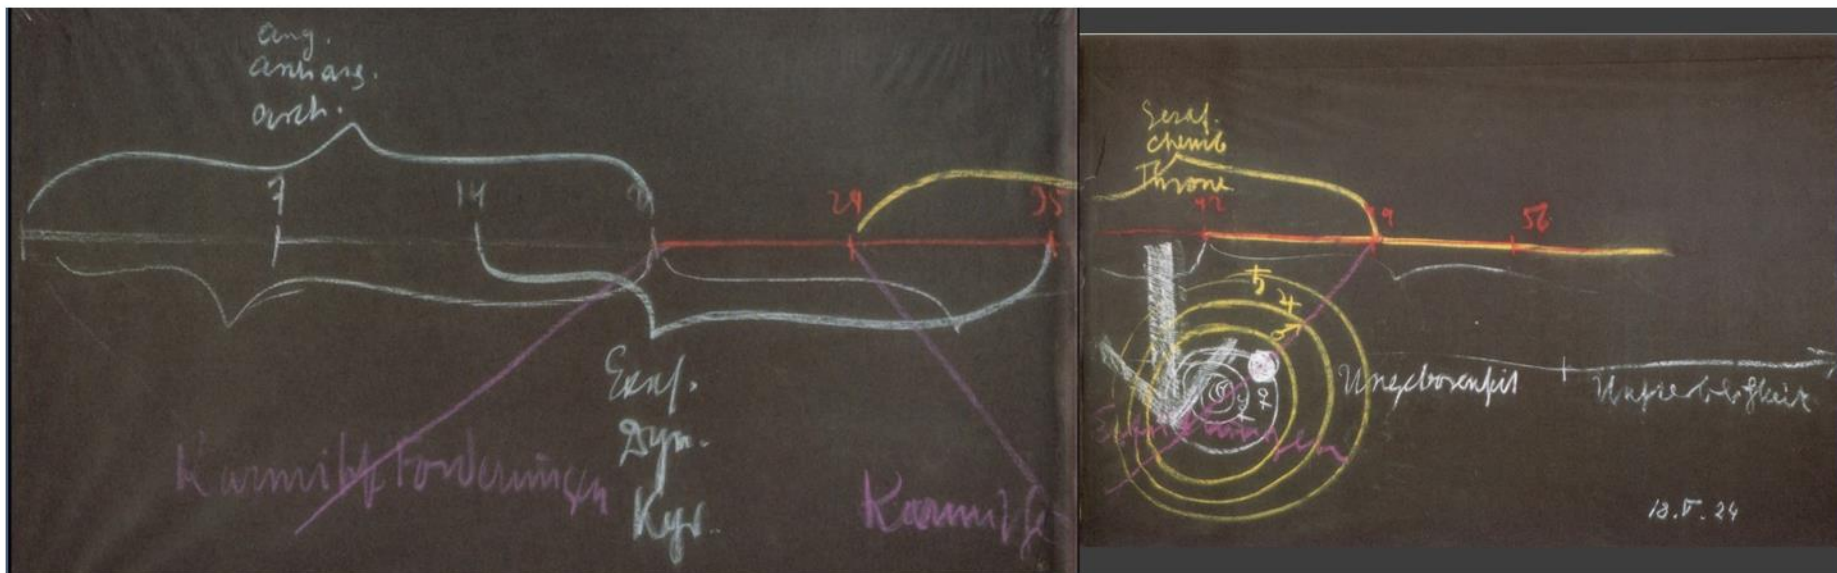 Ang.
Archang.
Arch.
7 14 21 28 35
Exus.
Dyn.
Kyr.
Karmische Forderungen
Karmische
Seraf.
Cherub
Throne
42 49 56
♄
♃
♂
♀
Erfüllungen
Ungeborenheit
Unsterblichkeit
18.V.24